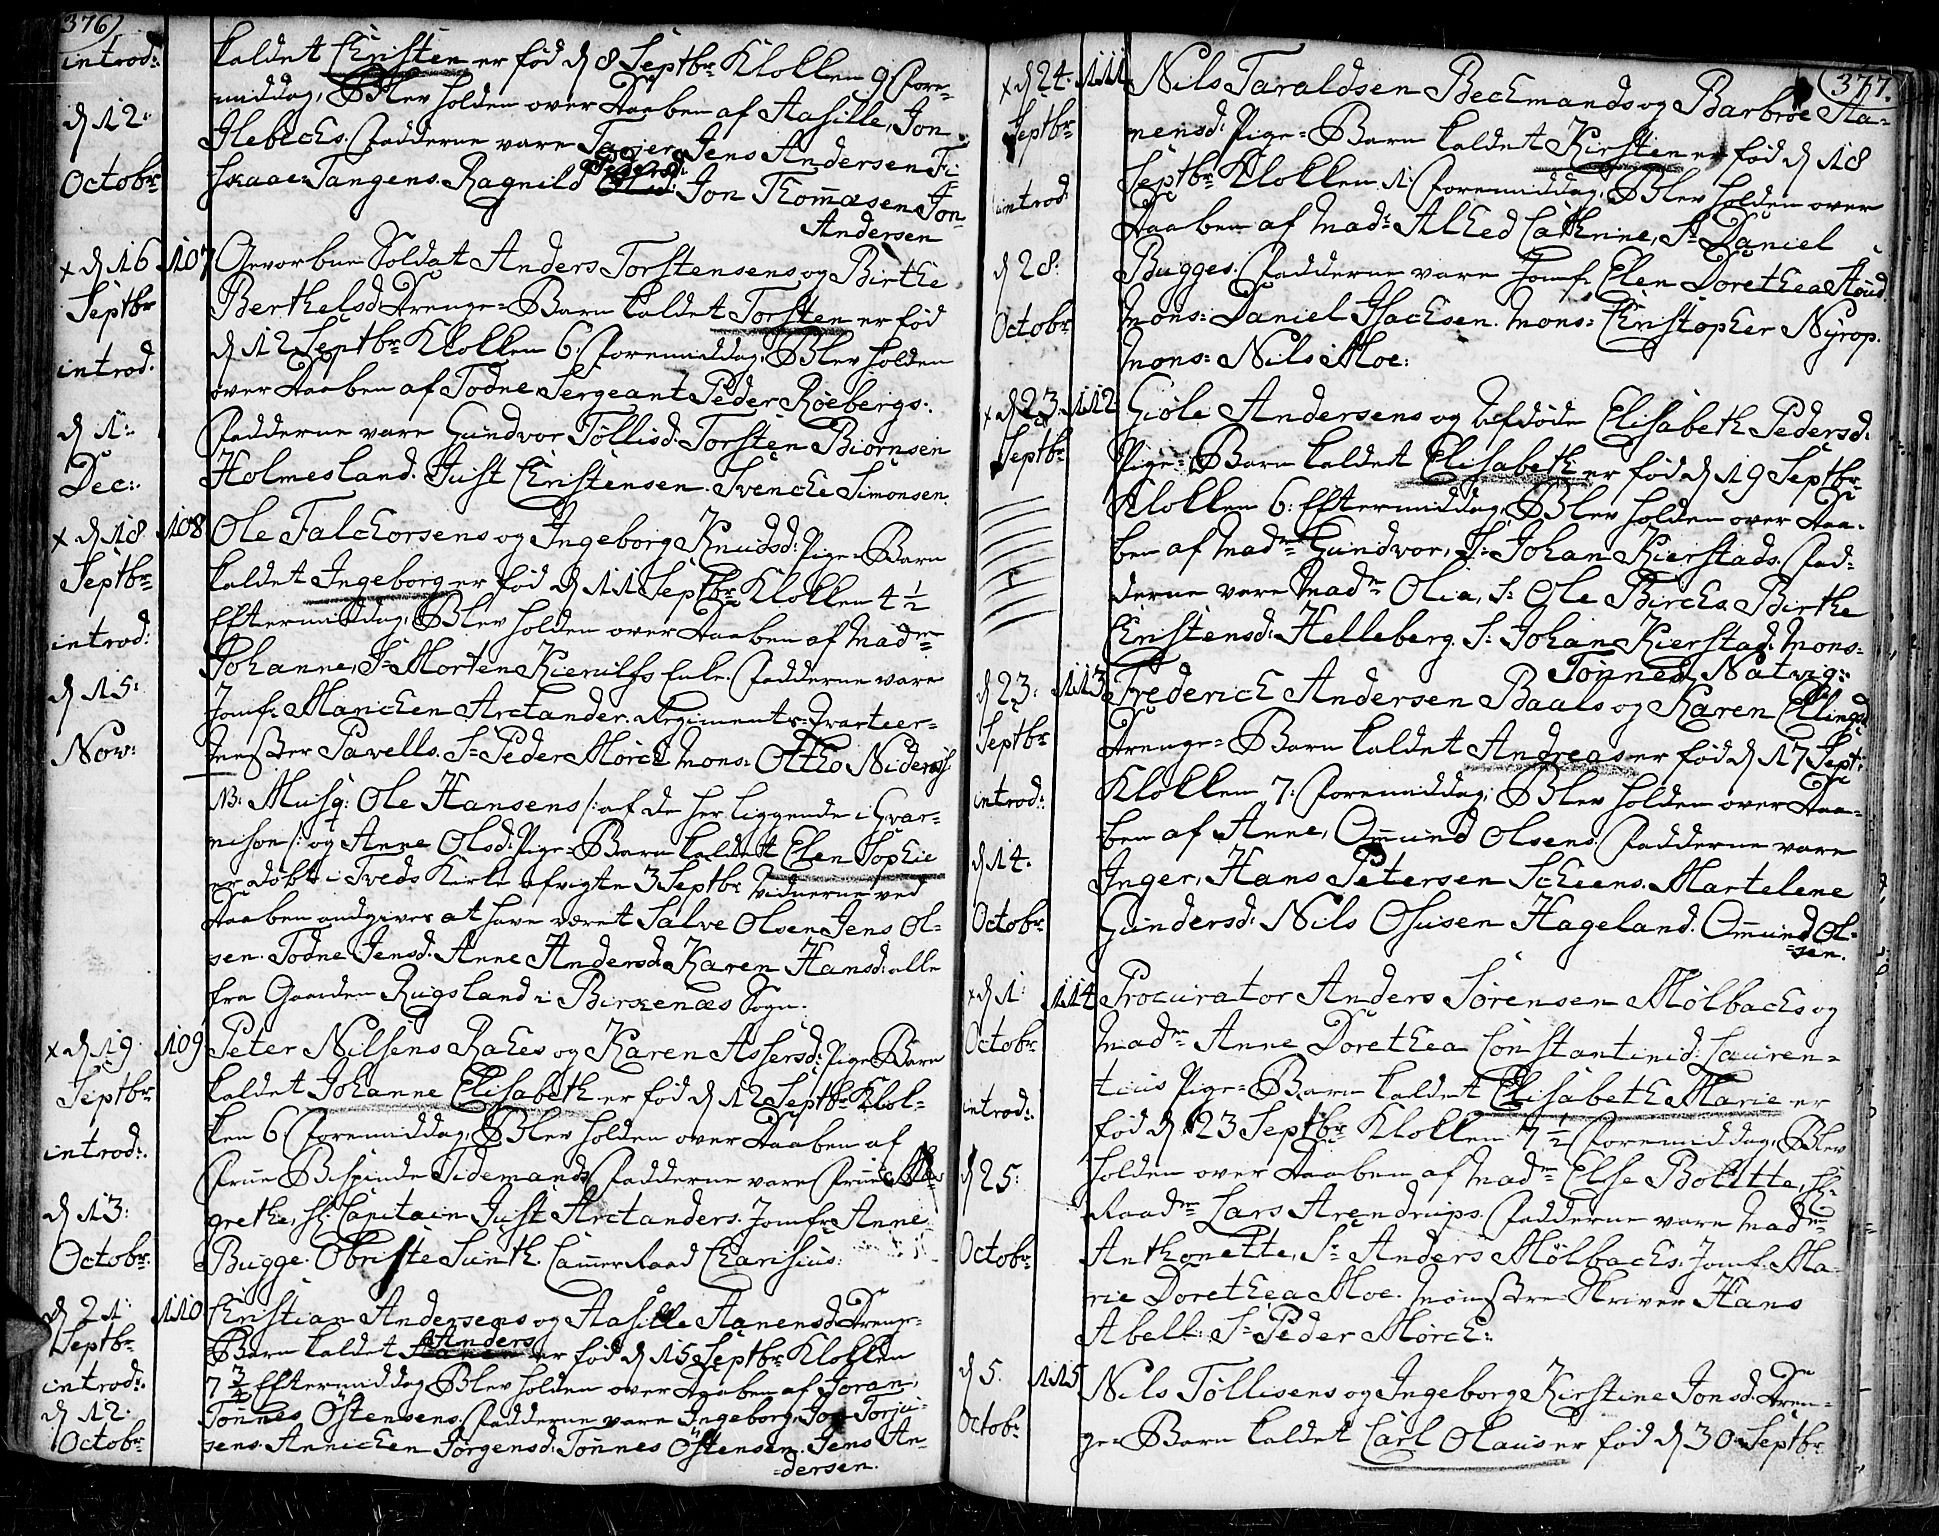 376)
introd:
kaldet Christen er fød d 8 Septbr Klokken 9 Fore-
middag, Blev holden over Daaben af Aasille, Jon
d 12:
Flebecks. Fadderne vare Taarer Jens Andersen Fi-
Octobr
skaae-Tangens. Ragnild Pedersd: Jon Thomæsen Jon
Andersen
x d 16 Septbr
107
Gevorbne Soldat Anders Torstensens og Birthe
Berthelsd: Drenge-Barn kaldet Torsten er fød
introd.
d 12 Septbr Klokken 6 Foremiddag, Blev holden
over Daaben af Todne Sergeant Peder Røebergs.
d 1: Dec:
Fadderne vare Gundvor Tøllisd: Torsten Biørnsen
Holmesland. Just Christensen. Svenche Simonsen.
x d 18 Septbr
108
Ole Falchorsens og Ingeborg Knudsd: Pige-Barn
kaldet Ingeborg er fød d 11 Septbr Klokken 4 1/2
introd:
Eftermiddag, Blev holden over Daaben af Madme
Johanne, Sr Morten Kierulfs Enke. Fadderne vare
d 15: Nov:
Jomfr Manchen Arctander. Regiments-Qvarteer-
Mester Pavells. Sr Peder Mørch Mons: Ottho Niders:
NB: Musq: Ole Hansens /: af de her liggende i Gvar-
nison :/ og Anne Olsd: Pige-Barn kaldet Elen Sophie
er døbt i Tveds Kirke afvigte 3 Septbr Vidnerne ved
Daaben andgives at have været Salve Olsen Jens Ol-
sen. Todne Jensd: Anne Andersd: Karen Hansd: alle
fra Gaarden Rugsland i Birkenæs Sogn:
x d 19 Septbr
109
Peter Nilsens Rakes og Karen Assersd: Pige-Barn
kaldet Johanne Elisabeth er fød d 12 Septbr Klok-
introd:
ken 6 Foremiddag, Blev holden over Daaben af
Frue Bispinde Tidemand, Fadderne vare Frue Mar-
d 13: Octobr:
grethe, Hr Capitain Just Arctanders. Jomfr Anne
Bugge. Obriste Sunth. Cammer Raad Charisius:
d 21: Septbr
110
Christian Andersens og Aasille Aanensd: Drenge-
Barn kaldet Anders er fød d 15 Septbr Klokken
introd:
7 3/4 Eftermiddag Blev holden over Daaben af Joran,
d 12: Octobr
Tønnes Østensens. Fadderne vare Ingeborg, Jon Torju-
sens. Annichen Jørgensd: Tønnes Østensen. Jens An-
-dersen.
377.
x d 24. Septbr
111
Nils Taraldsen Beckmands og Barbroe Aa-
nensd: Pige-Barn kaldet Kirsten er fød d 18
introd
Septbr Klokken 1: Foremiddag, Blev holden over
Daaben af Mad: Alhed Cathrine, Sr Daniel
d 28: Octobr
Bugges. Fadderne vare Jomf: Elen Dorethea Høud
Mons: Daniel Isachsen. Mons: Christopher Nyrop.
Mons: Nils Moe:
x d 23. Septbr
112
Giøle Andersens og Afdøde Elisabeth Pedersd:
Pige-Barn kaldet Elisabeth er fød d 19 Septbr
Klokken 6: Eftermiddag, Blev holden over Daa-
ben af Madme Gundvor, Sr Johan Kierstads. Fad-
derne vare Madme Olea, Sr Ole Birchs Birthe
Christensd: Helleberg. Sr Johan Kierstad. Mons:
Tønnes Natvig:
d 23: Septbr
113
Frederich Andersen Baals og Karen Ellingsd:
Drenge-Barn kaldet Andreas er fød d 17 Sept:
introd:
Klokken 7: Foremiddag, Blev holden over Daa-
ben af Anne, Omund Olsens. Fadderne vare
d 14. Octobr
Inger, Hans Petersen Scheens. Martelene
Gundersd: Nils Osusen Hageland. Omund Ol-
-sen.
x d 1: Octobr
114
Procurator Anders Sørensen Mølbachs og
Madme Anne Dorethea Constantinid: Lauren-
introd:
tius Pige-Barn kaldet Elisabeth Marie er
fød d 23 Septbr Klokken 7 1/2 Foremiddag, Blev
d 25:
holden over Daaben af Madme Else Bolette, Hr
Raadm Lars Arendrups. Fadderne vare Madme
Octobr
Anthonette, Sr Anders Mølbachs. Jomf: Ma-
rie Dorethea Moe. Mønstre-Skriver Hans
Abell: Sr Peder Mørch:
d 5. Octobr
115
Nils Tøllisens og Ingeborg Kirstine Jonsd: Dren-
ge-Barn kaldet Carl Olaus er fød d 30 Septbr